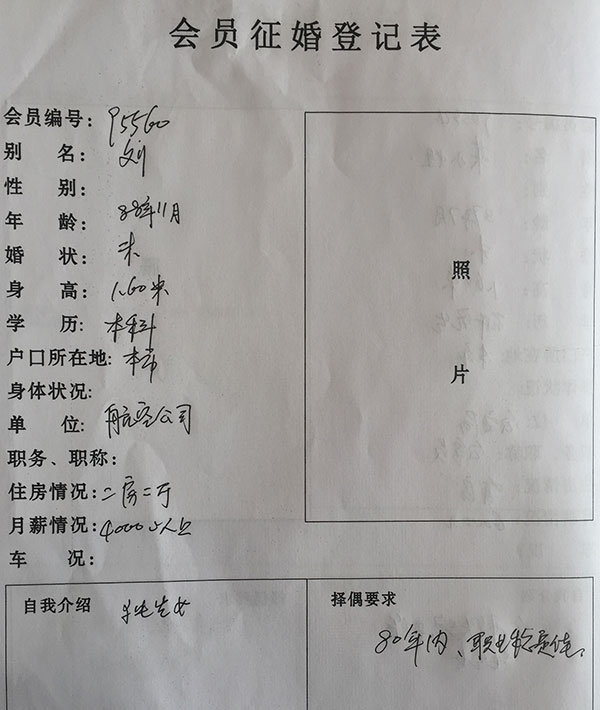 会员征婚登记表
会员编号：95560
别 名：刘
性 别：
年 龄：88年11月
婚 状：未
身 高：1.60米
学 历：本科
户口所在地：本市
身体状况：
单 位：航空公司
职务、职称：
住房情况：二房二厅
月薪情况：4000以上
车 况：
照
片
自我介绍
择偶要求
80年内、职业稳定佳。